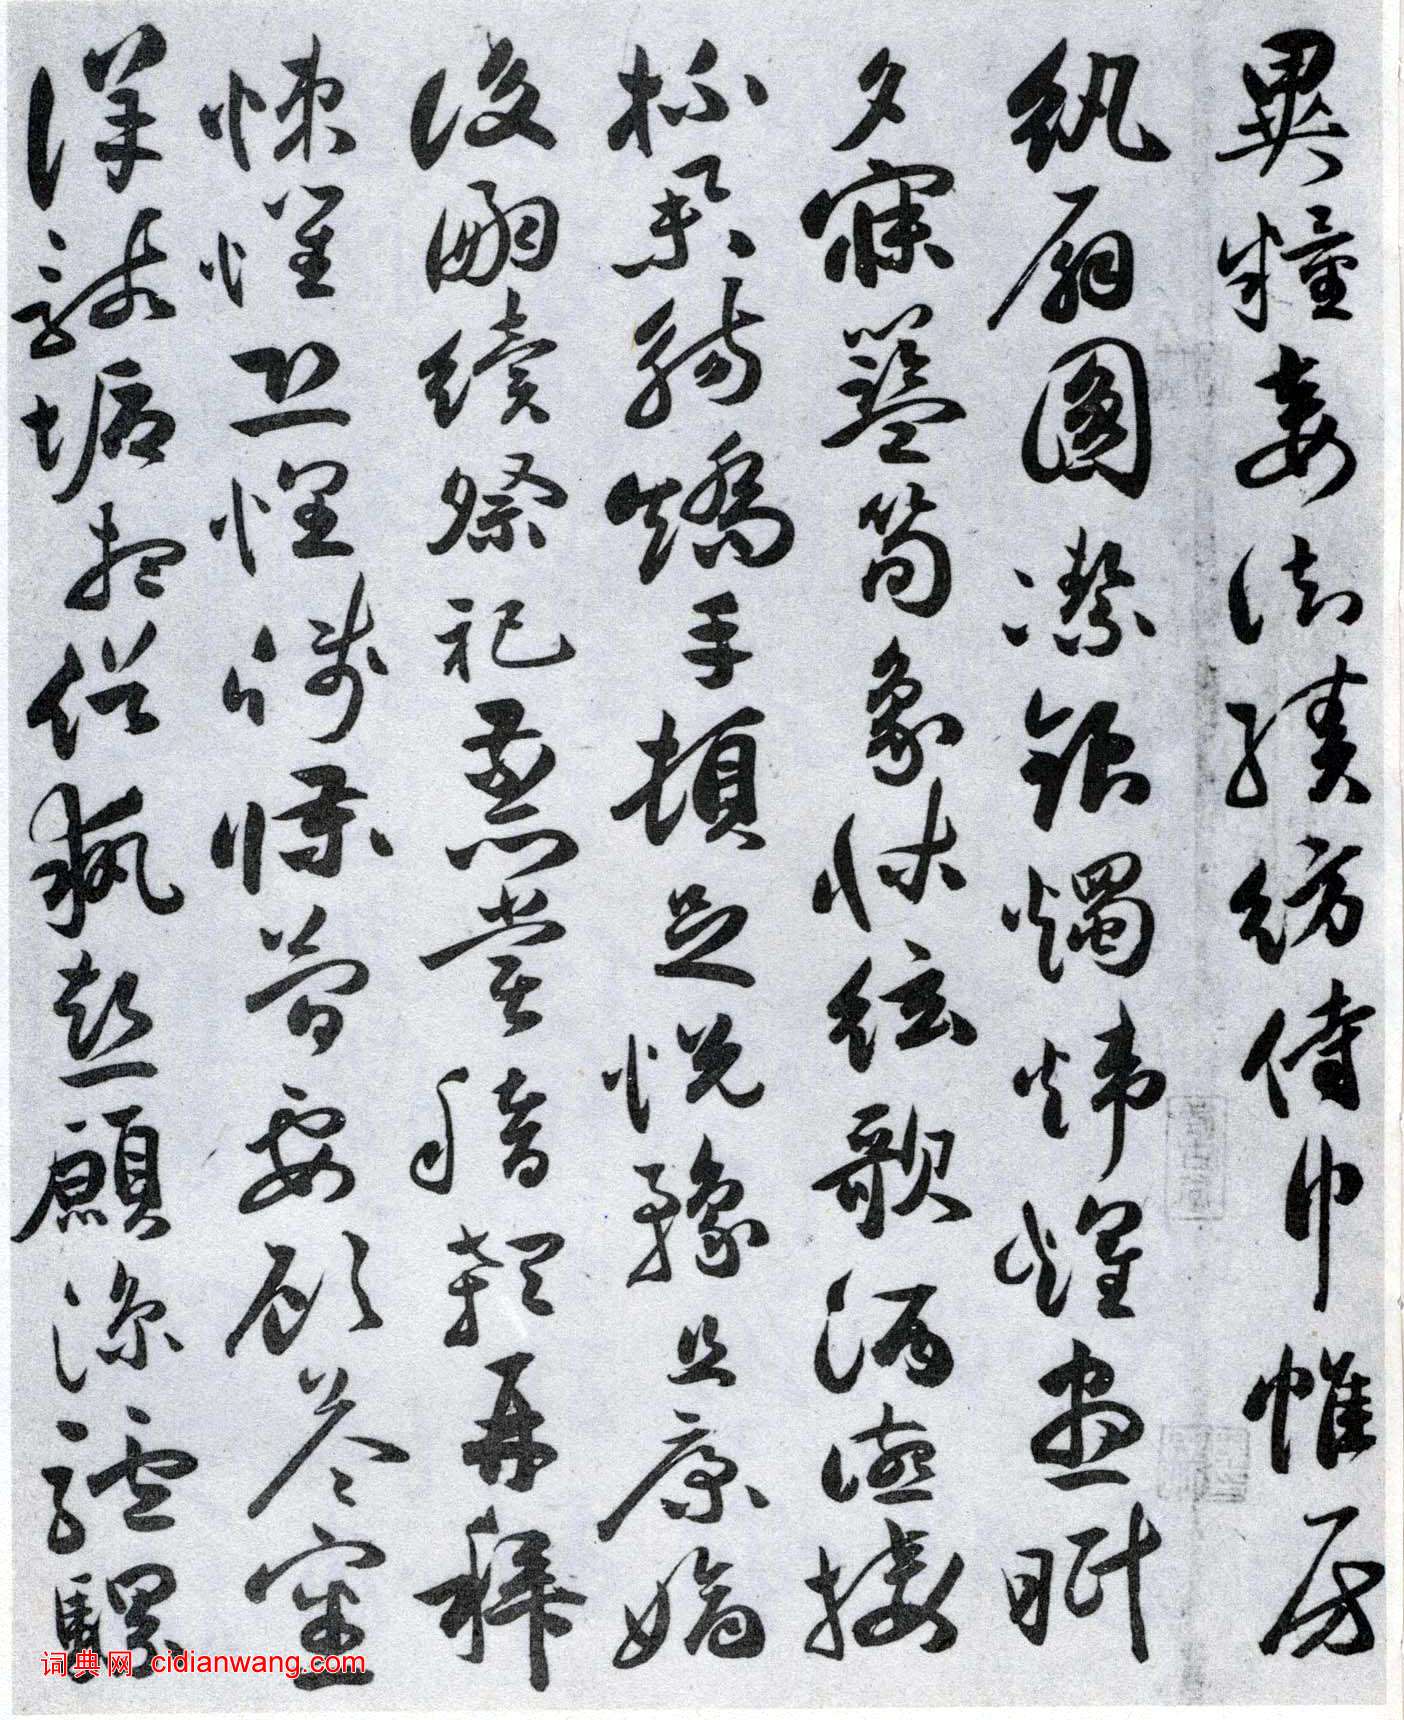 異糧妾御績紡侍巾帷房
紈扇圓潔銀燭煒煌晝眠
夕寐籃筍象床絃歌酒讌接
杯舉觴矯手頓足悅豫且康嫡
後嗣續祭祀蒸嘗稽顙再拜
悚懼恐惶牋牒簡要顧答審
詳骸垢想浴執熱願涼驢騾
词典网 cidianwang.com